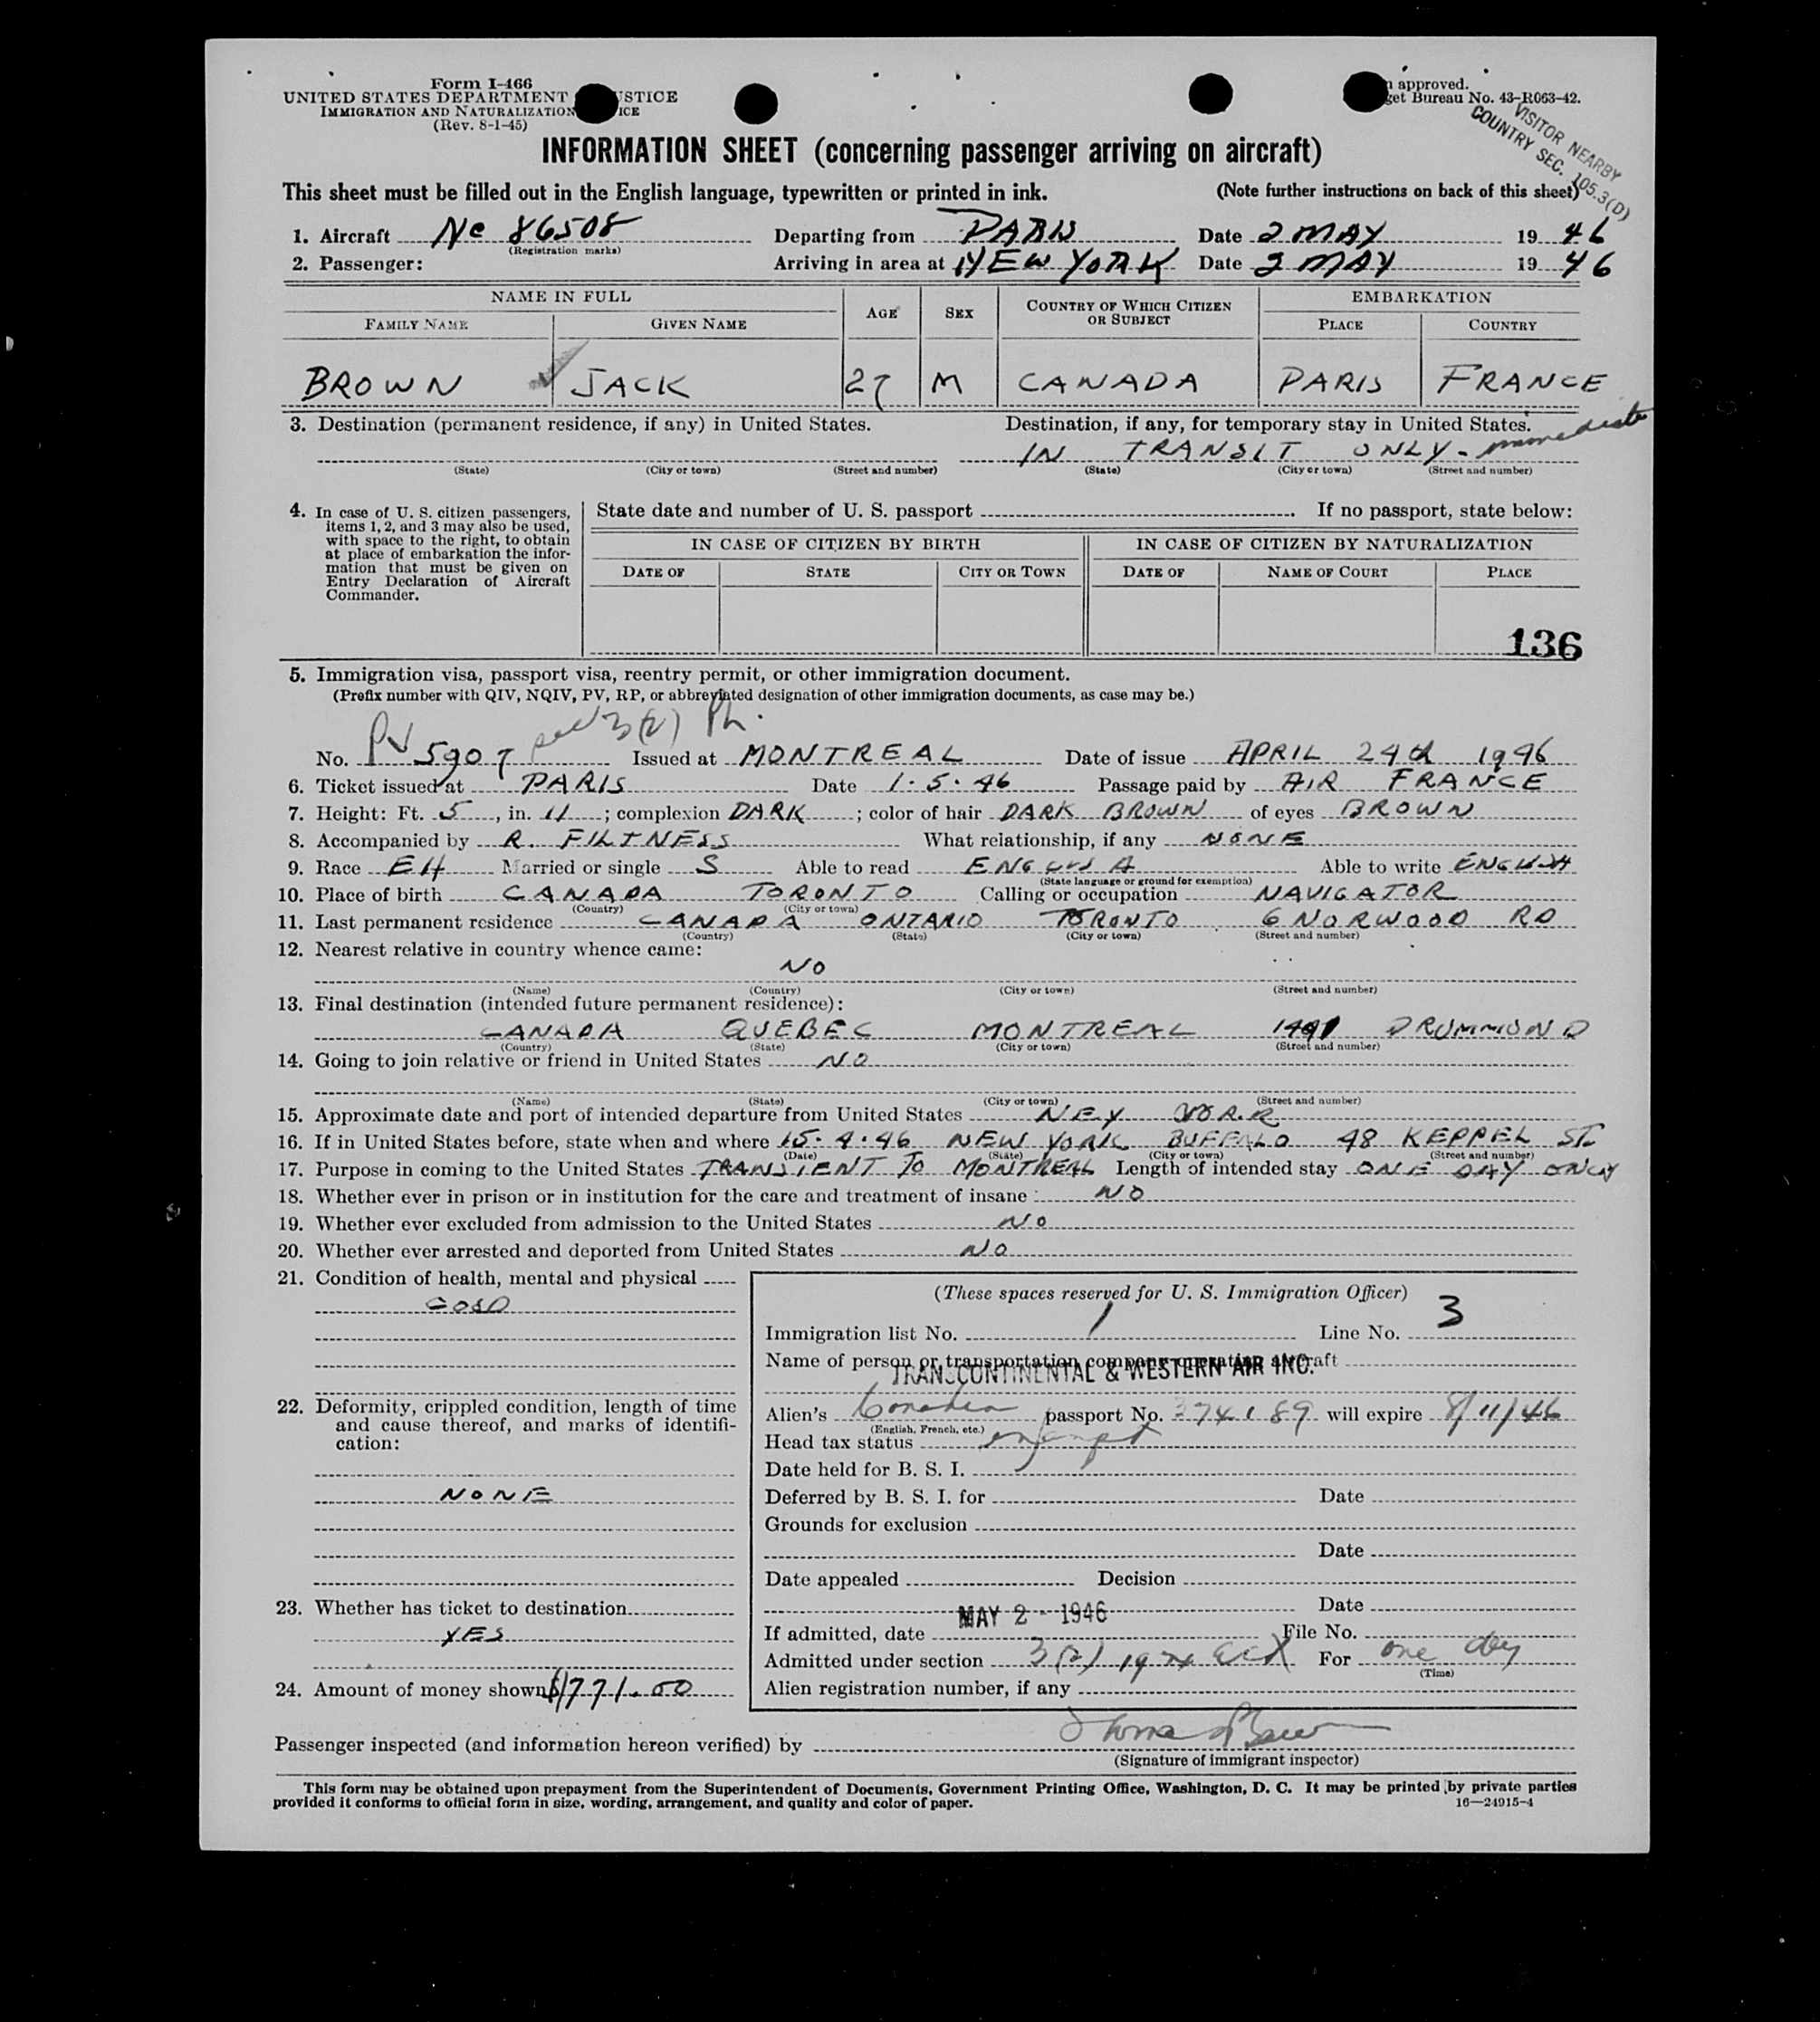 Form I-466
UNITED STATES DEPARTMENT STICE
IMMIGRATION AND NATURALIZATION ICE
(Rev. 8-1-45)
approved.
get Bureau No. 43-R063-42.
VISITOR NEARBY
COUNTRY SEC. 105.3(D)
INFORMATION SHEET (concerning passenger arriving on aircraft)
This sheet must be filled out in the English language, typewritten or printed in ink. (Note further instructions on back of this sheet)
1. Aircraft Nc 86508 Departing from PARIS Date 2 MAY 19 46
(Registration marks)
2. Passenger: Arriving in area at NEW YORK Date 2 MAY 19 46
NAME IN FULL AGE SEX COUNTRY OF WHICH CITIZEN OR SUBJECT EMBARKATION
FAMILY NAME GIVEN NAME PLACE COUNTRY
BROWN JACK 27 M CANADA PARIS FRANCE
3. Destination (permanent residence, if any) in United States. Destination, if any, for temporary stay in United States.
IN TRANSIT ONLY - immediate
(State) (City or town) (Street and number) (State) (City or town) (Street and number)
4. In case of U. S. citizen passengers, items 1, 2, and 3 may also be used, with space to the right, to obtain at place of embarkation the information that must be given on Entry Declaration of Aircraft Commander.
State date and number of U. S. passport If no passport, state below:
IN CASE OF CITIZEN BY BIRTH IN CASE OF CITIZEN BY NATURALIZATION
DATE OF STATE CITY OR TOWN DATE OF NAME OF COURT PLACE
136
5. Immigration visa, passport visa, reentry permit, or other immigration document.
(Prefix number with QIV, NQIV, PV, RP, or abbreviated designation of other immigration documents, as case may be.)
No. PV 5907 3(2) Issued at MONTREAL Date of issue APRIL 24th 1946
6. Ticket issued at PARIS Date 1.5.46 Passage paid by AIR FRANCE
7. Height: Ft. 5, in. 11; complexion DARK; color of hair DARK BROWN of eyes BROWN
8. Accompanied by R. FILTNESS What relationship, if any NONE
9. Race EH Married or single S Able to read ENGLISH Able to write ENGLISH
(State language or ground for exemption)
10. Place of birth CANADA TORONTO Calling or occupation NAVIGATOR
(Country) (City or town)
11. Last permanent residence CANADA ONTARIO TORONTO 6 NORWOOD RD
(Country) (State) (City or town) (Street and number)
12. Nearest relative in country whence came:
NO
(Name) (Country) (City or town) (Street and number)
13. Final destination (intended future permanent residence):
CANADA QUEBEC MONTREAL DRUMMOND
(Country) (State) (City or town) (Street and number)
14. Going to join relative or friend in United States NO
(Name) (State) (City or town) (Street and number)
15. Approximate date and port of intended departure from United States NEY YORK
16. If in United States before, state when and where 15.4.46 NEW YORK BUFFALO 48 KEPPEL ST.
(Date) (State) (City or town) (Street and number)
17. Purpose in coming to the United States TRANSIENT TO MONTREAL Length of intended stay ONE DAY ONLY
18. Whether ever in prison or in institution for the care and treatment of insane NO
19. Whether ever excluded from admission to the United States No
20. Whether ever arrested and deported from United States NO
21. Condition of health, mental and physical
GOOD
22. Deformity, crippled condition, length of time and cause thereof, and marks of identification:
NONE
23. Whether has ticket to destination
YES
24. Amount of money shown $1771.00
(These spaces reserved for U. S. Immigration Officer)
Immigration list No. 1 Line No. 3
Name of person or transportation company operating aircraft
TRANSCONTINENTAL & WESTERN AIR INC.
Alien's Canadian passport No. 374189 will expire 8/11/46
(English, French, etc.)
Head tax status exempt
Date held for B. S. I.
Deferred by B. S. I. for Date
Grounds for exclusion
Date
Date appealed Decision
Date
If admitted, date MAY 2 - 1946 File No.
Admitted under section 3(2) 1924 act For one day
(Time)
Alien registration number, if any
Passenger inspected (and information hereon verified) by
(Signature of immigrant inspector)
This form may be obtained upon prepayment from the Superintendent of Documents, Government Printing Office, Washington, D. C. It may be printed by private parties
provided it conforms to official form in size, wording, arrangement, and quality and color of paper. 16—24915-4